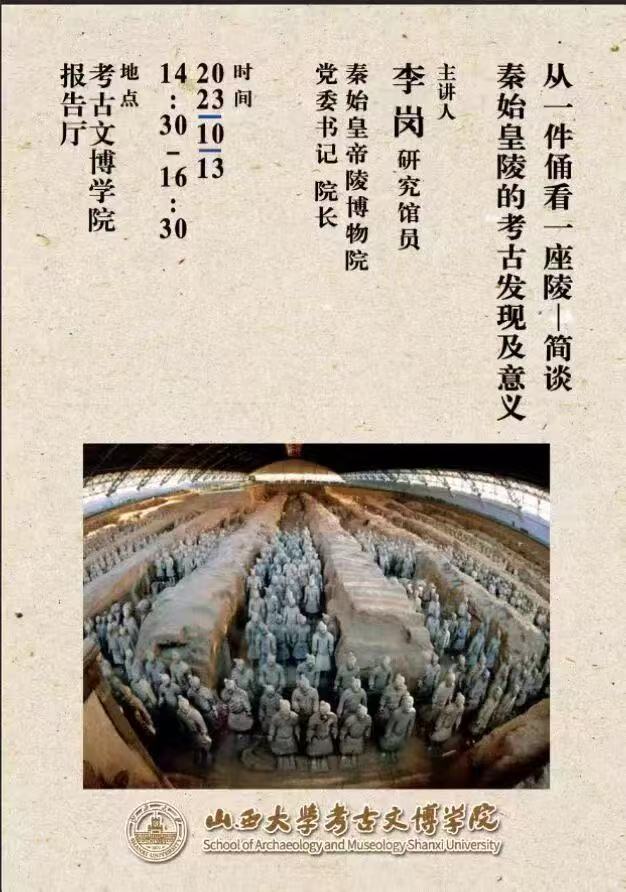 从一件俑看一座陵—简谈
秦始皇陵的考古发现及意义
主讲人
李岗 研究馆员
秦始皇帝陵博物院
党委书记 院长
时间
2023—10—13
14:30—16:30
地点
考古文博学院
报告厅
山西大学考古文博学院
School of Archaeology and Museology Shanxi University